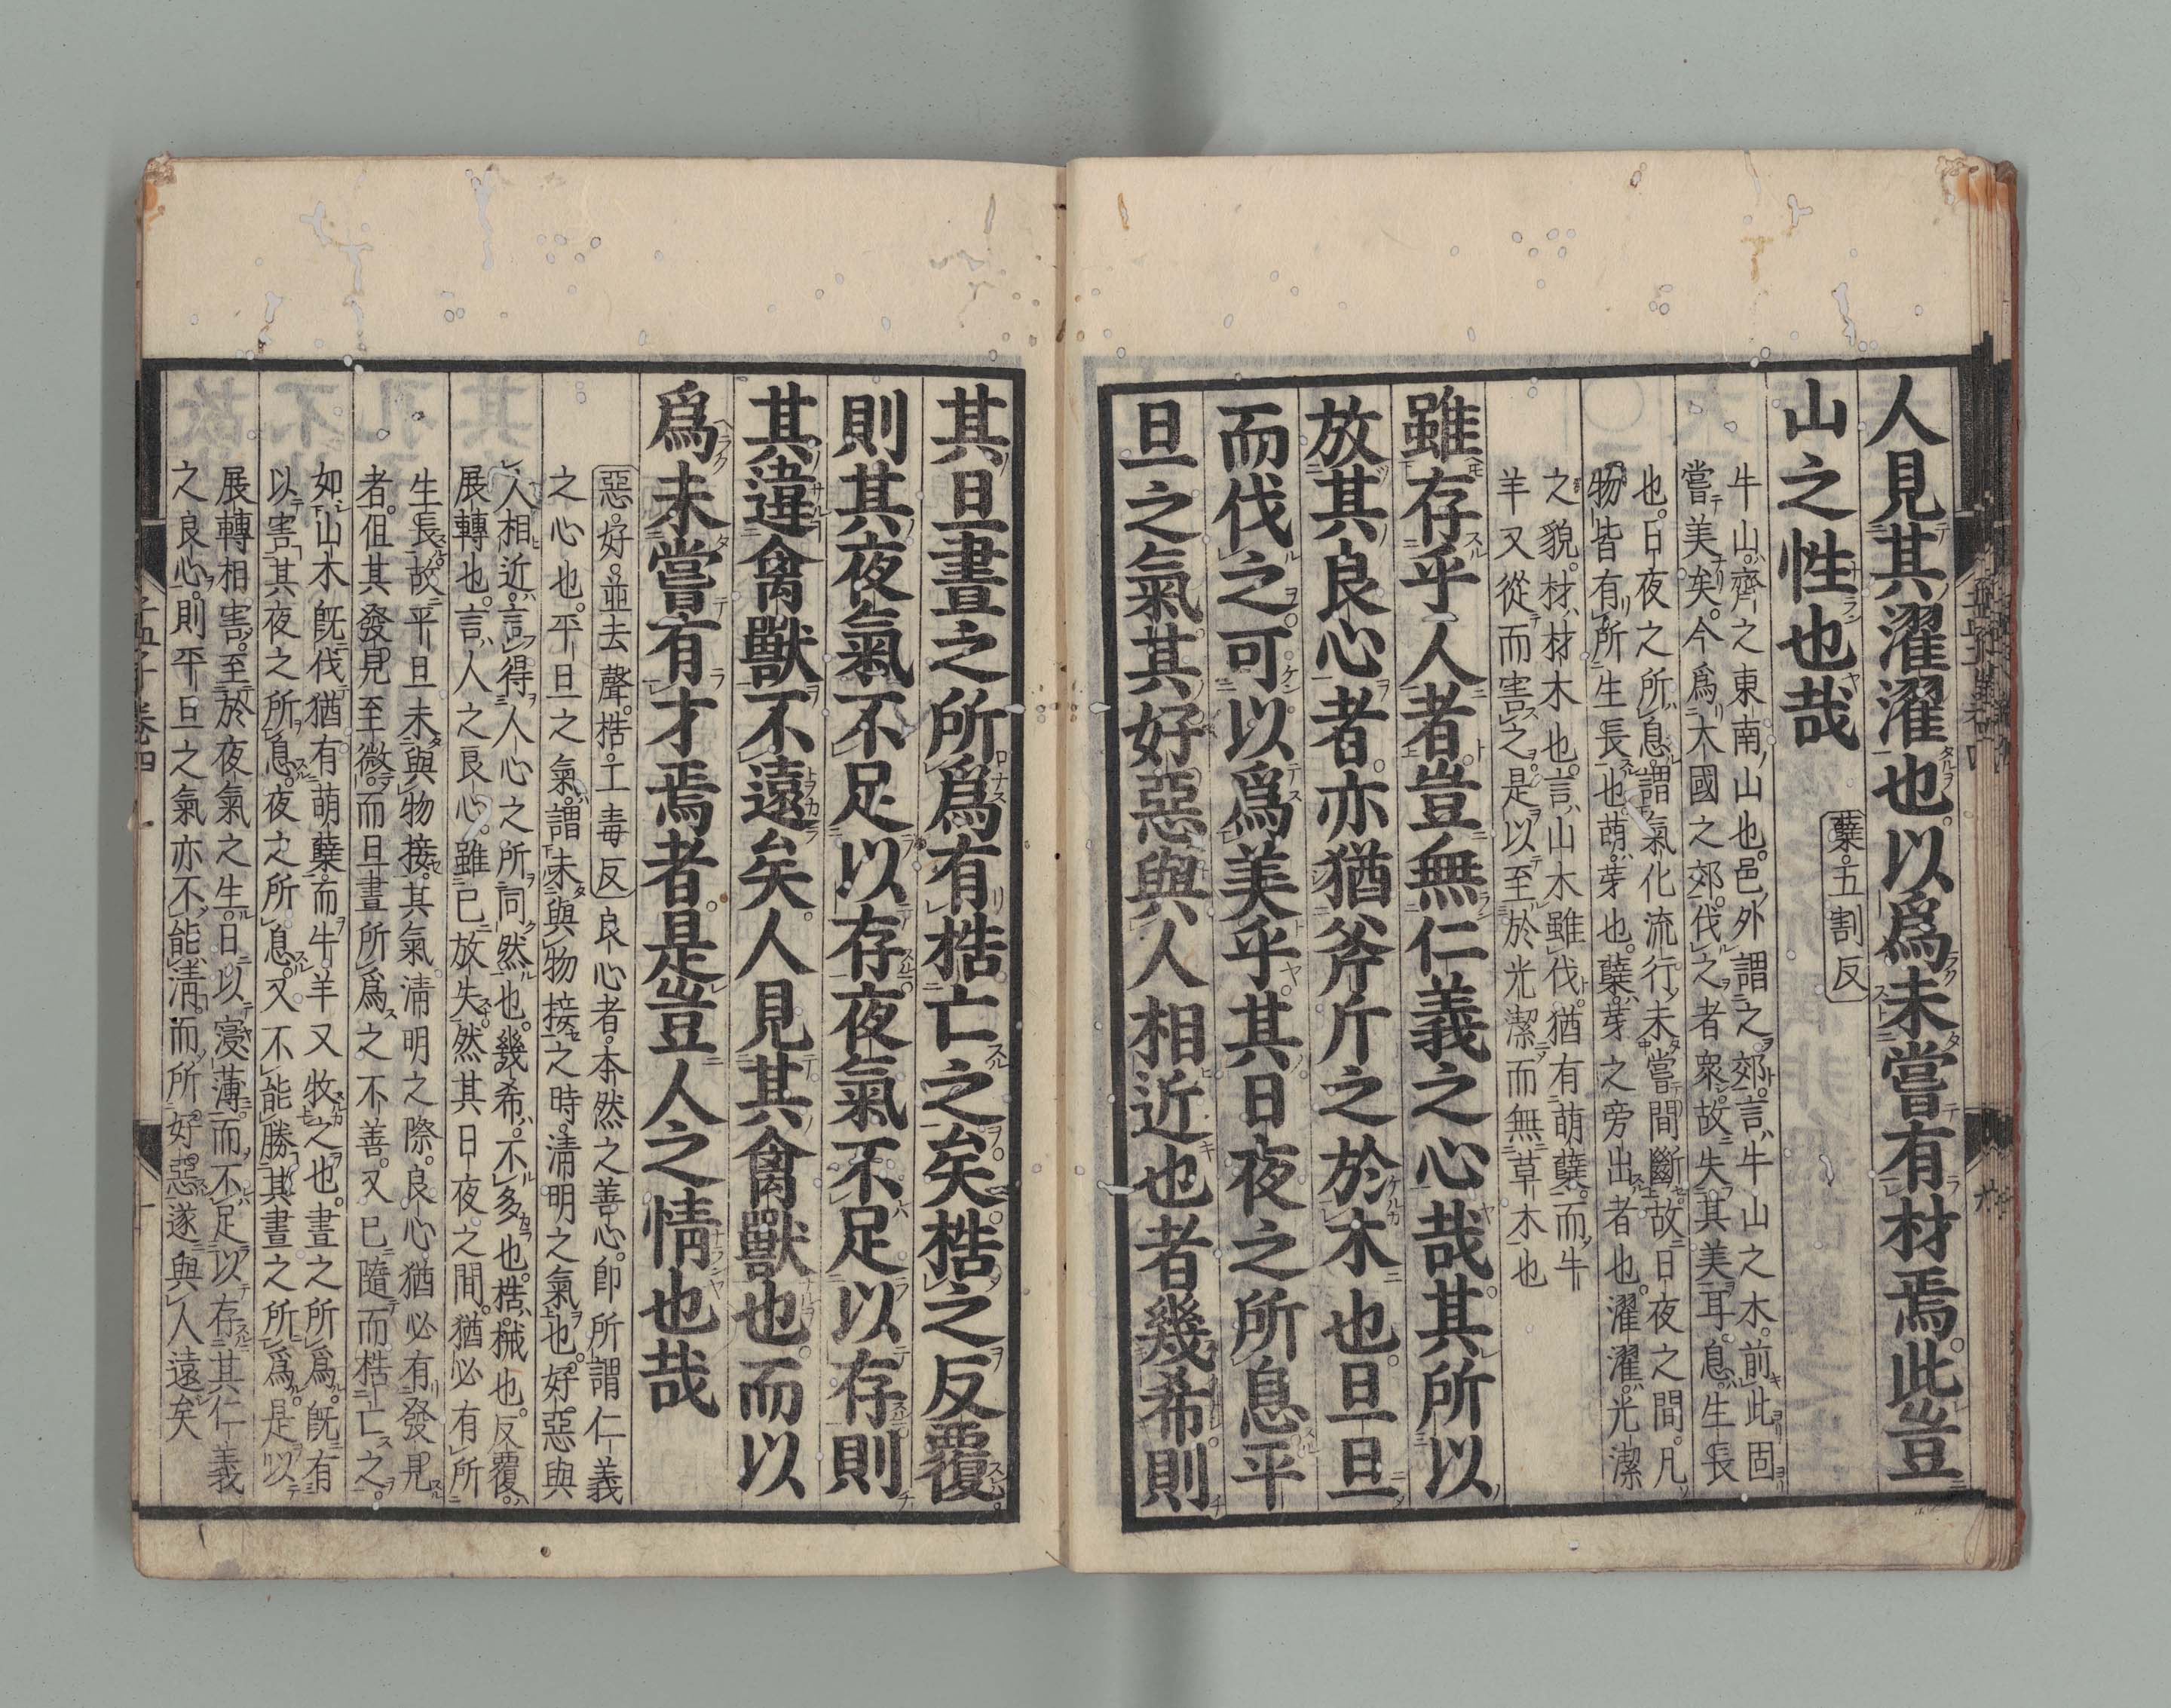 人見其濯濯也以爲未嘗有材焉此豈
山之性也哉
櫱五割反
牛山齊之東南山也邑外謂之郊言牛山之木前此固
嘗美矣今爲大國之郊伐之者衆故失其美耳息生長
也日夜之所息謂氣化流行未嘗間斷故日夜之間凡
物皆有所生長也萌芽也櫱芽之旁出者也濯濯光潔
之貌材材木也言山木雖伐猶有萌櫱而牛
羊又從而害之是以至於光潔而無草木也
雖存乎人者豈無仁義之心哉其所以
放其良心者亦猶斧斤之於木也旦旦
而伐之可以爲美乎其日夜之所息平
旦之氣其好惡與人相近也者幾希則
其旦晝之所爲有梏亡之矣梏之反覆
則其夜氣不足以存夜氣不足以存則
其違禽獸不遠矣人見其禽獸也而以
爲未嘗有才焉者是豈人之情也哉
惡好並去聲梏工毒反良心者本然之善心卽所謂仁義
之心也平旦之氣謂未與物接之時淸明之氣也好惡與
人相近言得人心之所同然也幾希不多也梏械也反覆
展轉也言人之良心雖已放失然其日夜之間猶必有所
生長故平旦未與物接其氣淸明之際良心猶必有發見
者但其發見至微而旦晝所爲之不善又已隨而梏亡之
如山木旣伐猶有萌櫱而牛羊又牧之也晝之所爲旣有
以害其夜之所息夜之所息又不能勝其晝之所爲是以
展轉相害至於夜氣之生日以寖薄而不足以存其仁義
之良心則平旦之氣亦不能淸而所好惡遂與人遠矣